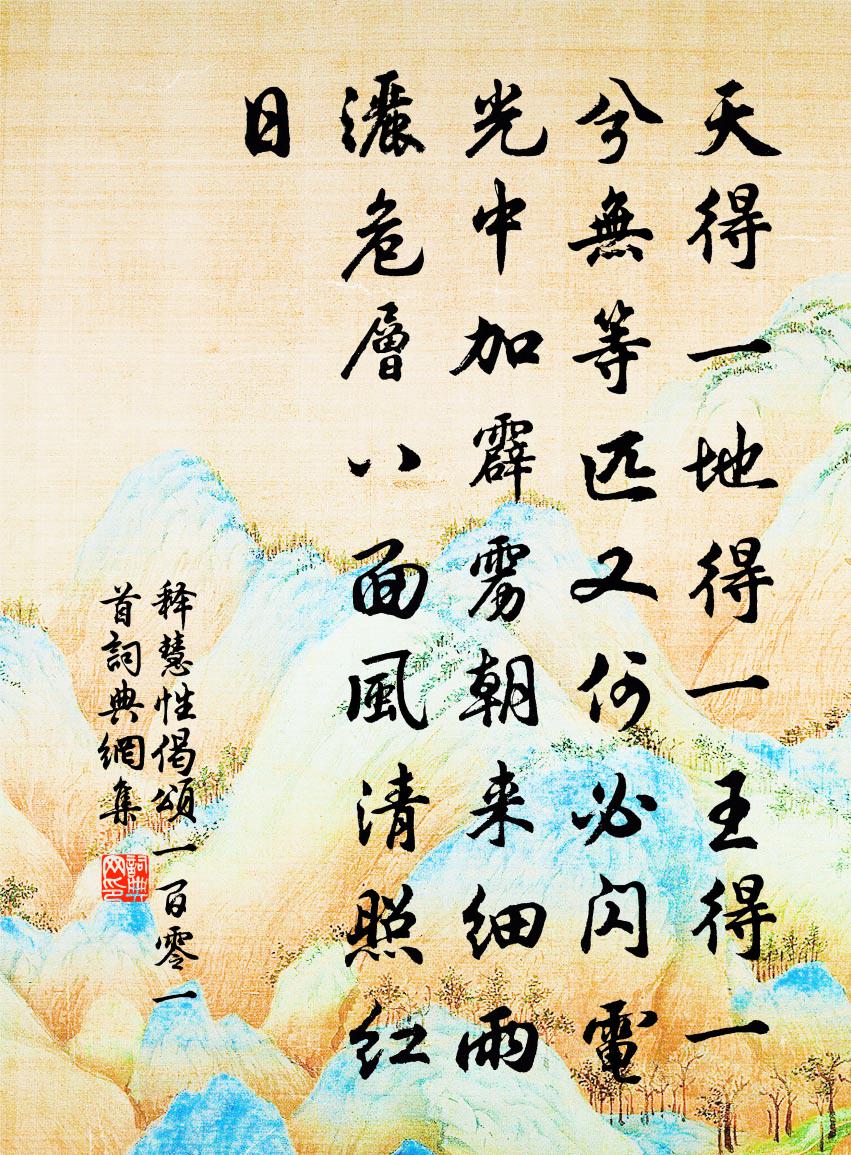 天得一地得一王得一
兮無等匹又何必閃電
光中加霹雳朝来细雨
灑危層八面風清照红
日
释慧性偈頌一百零一
首詞典網集
詞典网印